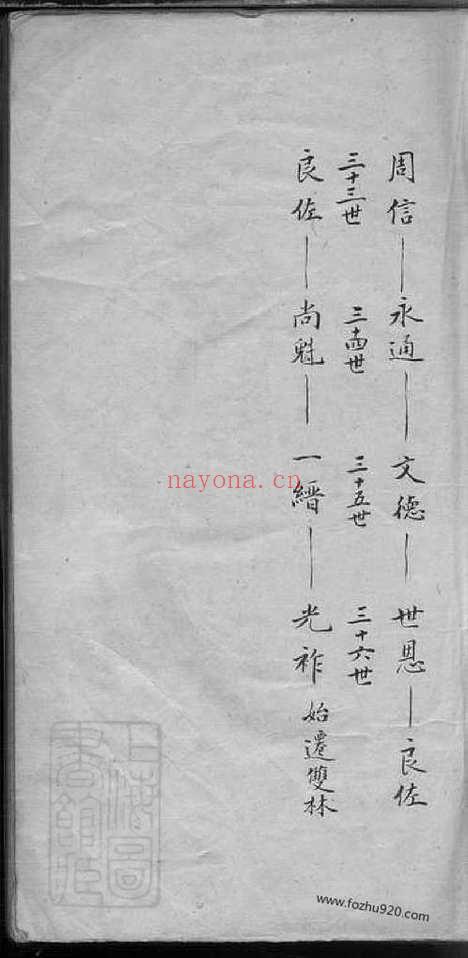 周信——永通——文德——世恩——良佐
三十三世 三十四世 三十五世 三十六世
良佐——尚魁——一縉——光祚 始遷雙林
nayona.cn
www.fozhu920.com